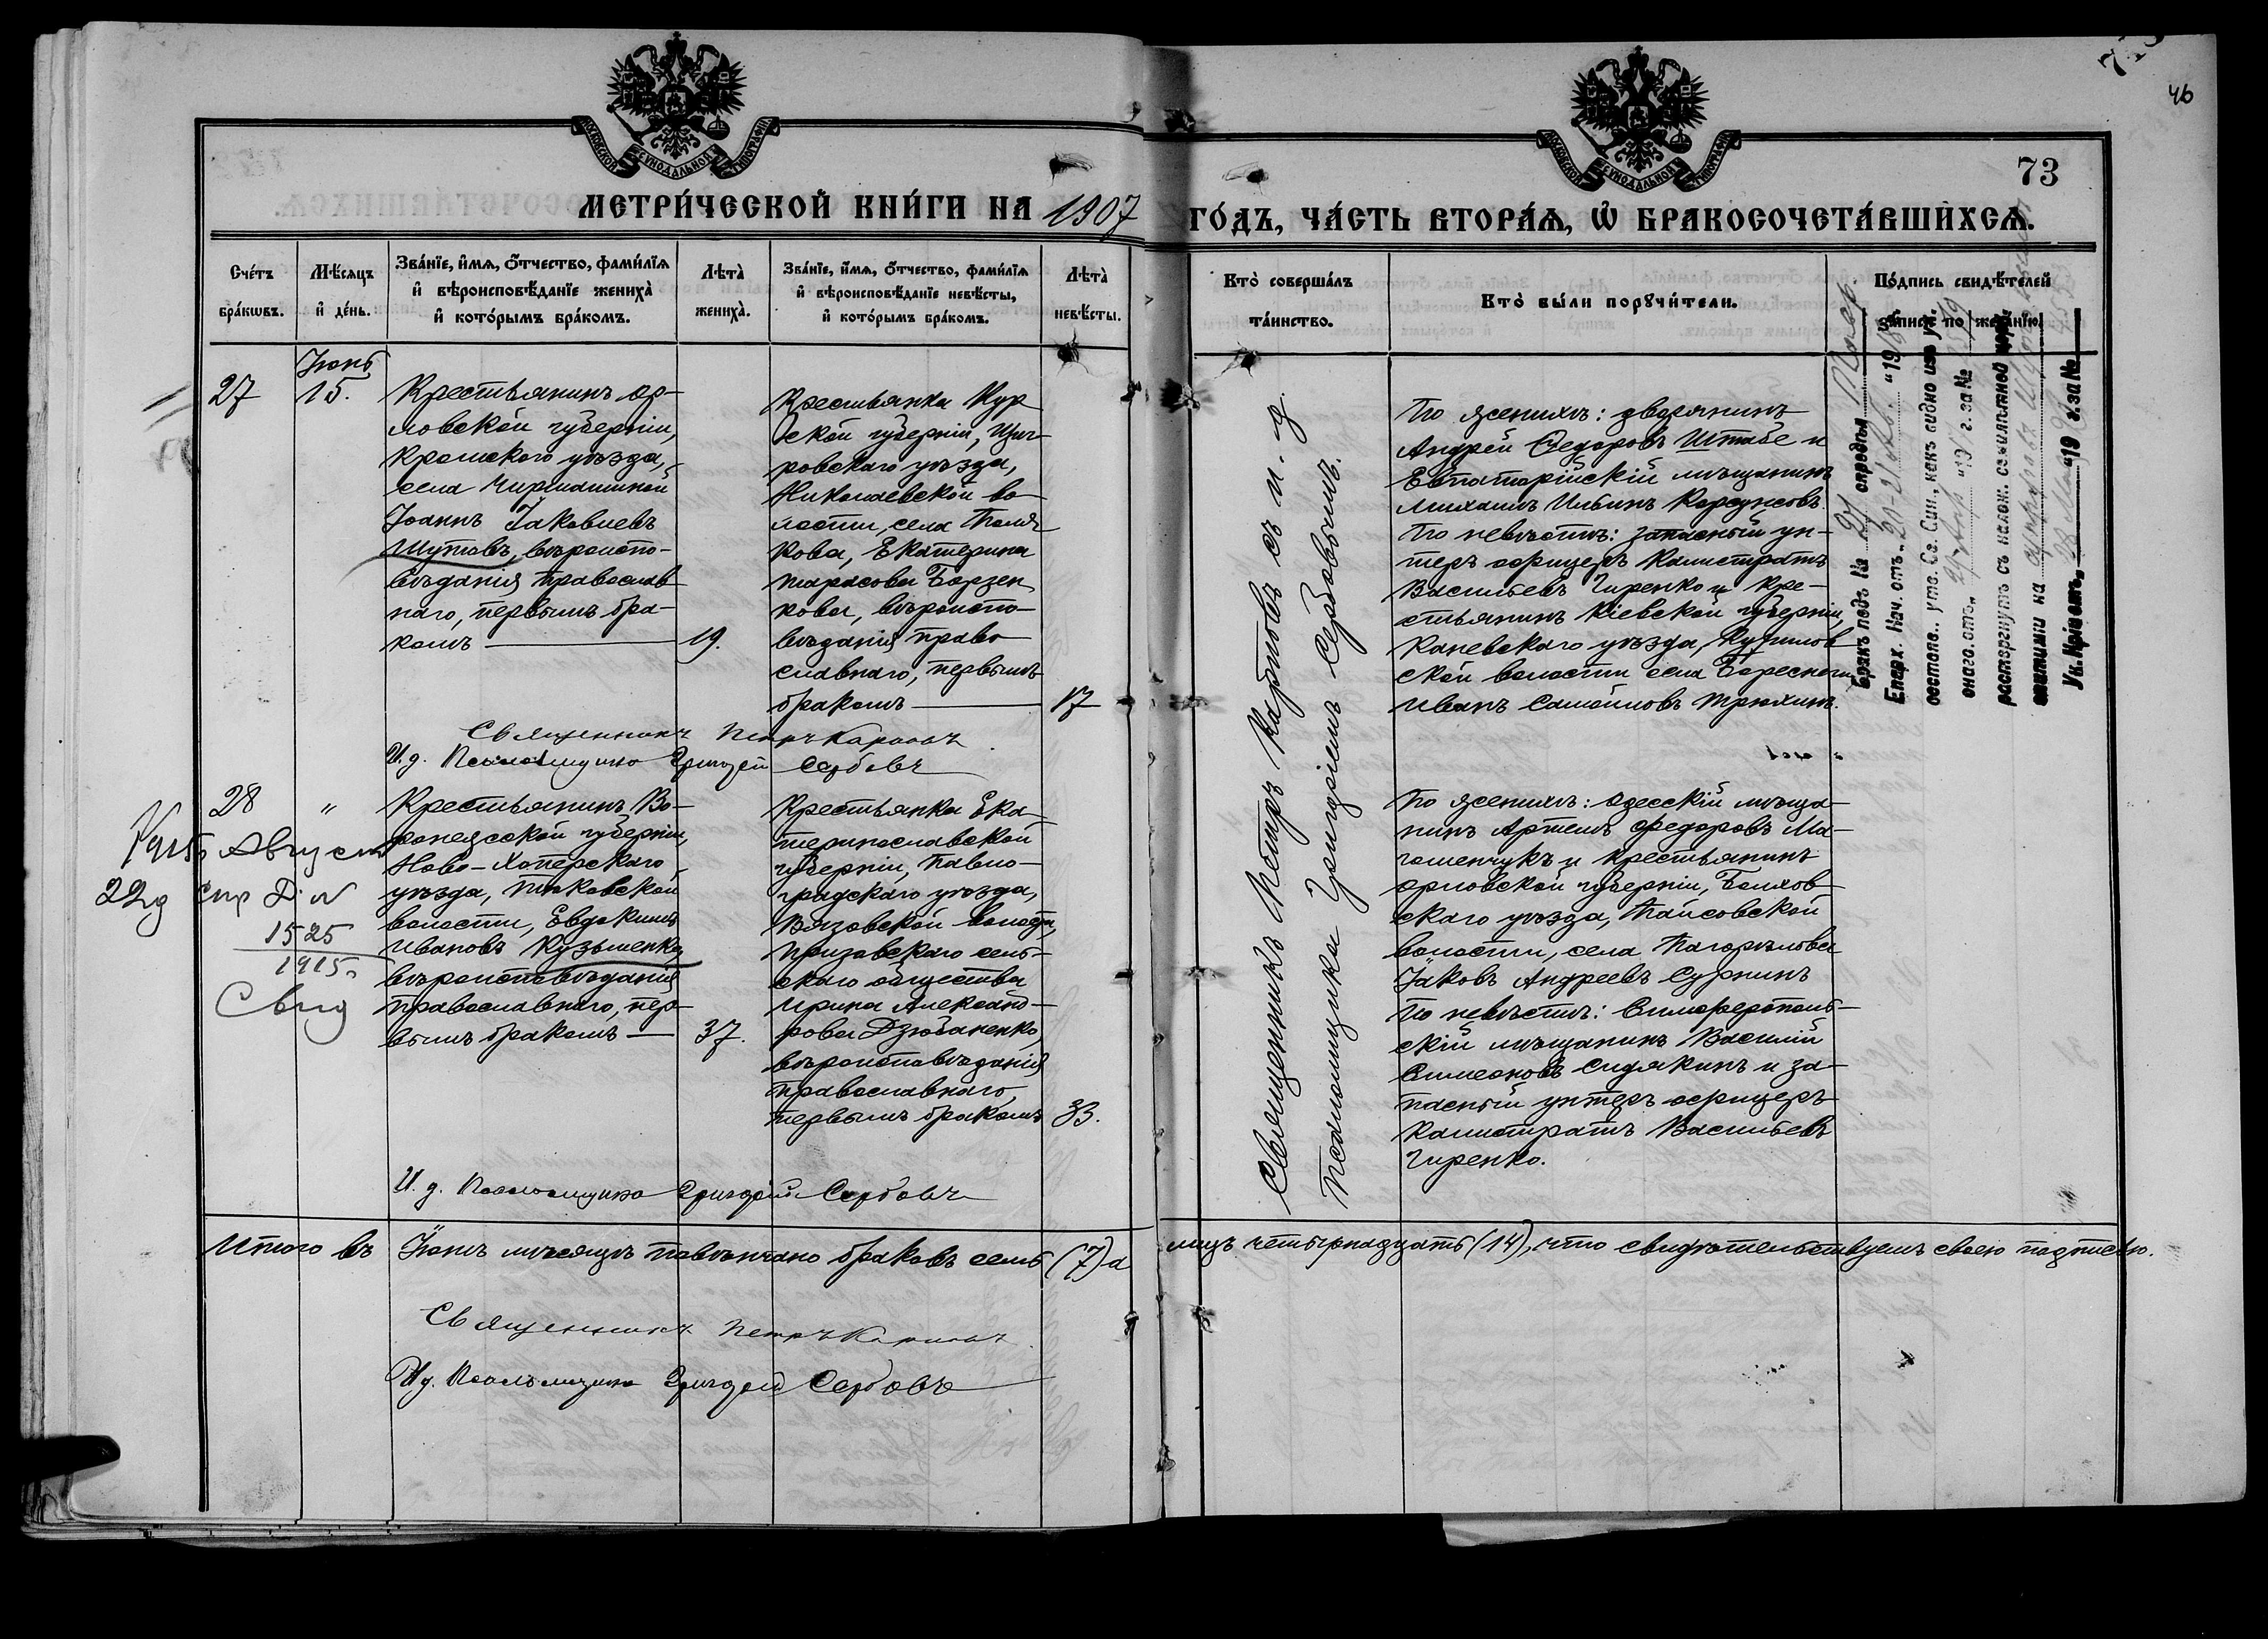 73
46
МОСКОВСКОЙ СѴНОДАЛЬНОЙ ТИПОГРАФІИ
МОСКОВСКОЙ СѴНОДАЛЬНОЙ ТИПОГРАФІИ
МЕТРИ́ЧЕСКОЙ КНИ́ГИ НА 1907 ГО́ДЪ, ЧА́СТЬ ВТОРА́Ѧ, Ѡ҆ БРАКОСОЧЕТА́ВШИХСѦ.
Сче́тъ бра́кѡвъ.
Мѣ́сяцъ и҆ де́нь.
Зва́нїе, и҆́мѧ, ѻ҆́тчество, фами́лїѧ и҆ вѣроисповѣ́данїе жениха̀ и҆ кото́рымъ бра́комъ.
Лѣта̀ жениха̀.
Зва́нїе, и҆́мѧ, ѻ҆́тчество, фами́лїѧ и҆ вѣроисповѣ́данїе невѣ́сты, и҆ кото́рымъ бра́комъ.
Лѣта̀ невѣ́сты.
Кто̀ соверша́лъ та́инство.
Кто̀ бы́ли порꙋчи́тели.
По́дпись свидѣ́телей за́писи по жела́нїю.
27
Іюнь
15.
Крестьянинъ Ор-
ловской губерніи,
Кромскаго уѣзда,
села
Іоаннъ Іаковлевъ
Шутовъ, вѣроиспо-
вѣданія православ
наго, первымъ бра-
комъ
19.
Крестьянка Кур
ской губерніи, Щиг-
ровскаго уѣзда,
Николаевской во-
лости, села Поля
кова, Екатерина
Тарасова Борзен
кова, вѣроиспо-
вѣданія право
славнаго, первымъ
бракомъ
17
Священникъ Петръ Карповъ
И. д. Псаломщика Григорій Сербовъ
Священникъ Петръ Карповъ съ и. д.
Псаломщика Григоріемъ Сербовымъ.
По женихѣ: дворянинъ
Андрей Ѳедоровъ Штабе и
Евпаторійскій мѣщанинъ
Михаилъ Ильинъ Корсунсовъ.
По невѣстѣ: запасный ун-
теръ офицеръ Калистратъ
Васильевъ Чиренко и кре-
стьянинъ Кіевской губерніи,
Каневскаго уѣзда,
ской волости села
Иванъ Самойловъ Трюхинъ.
Бракъ подъ № 27 опредѣл.
Епарх. Нач. отъ „20-21 „19
состояв., утв. Св. Син., какъ видно изъ ук.
онаго отъ „ „19 г. за №
расторгнутъ съ налож. семилѣтней
епитиміи на
Ук. Кріеотъ „ „19 г. за №
28
"
Крестьянинъ Во-
ронежской губерніи,
Ново-Хоперскаго
уѣзда, Пыховской
волости, Евдокимъ
Ивановъ Кузьменко
вѣроисповѣданія
православнаго, пер-
вымъ бракомъ
37.
1915 Август
22д Спр D. N
1525
1915г
Свид
Крестьянка Ека
теринославской
губерніи, Павло-
градскаго уѣзда,
Вязовской волости,
сель-
скаго общества
Ирина Александ-
рова Дзюбаненко,
вѣроисповѣданія
православнаго,
первымъ бракомъ
33.
По женихѣ: Одесскій мѣща-
нинъ Артемъ Федоровъ Ма-
гошенчукъ и крестьянинъ
Орловской губерніи, Болхов-
скаго уѣзда, Пайсовской
волости, села
Іаковъ Андреевъ Сурнинъ
По невѣстѣ: Симферополь-
скій мѣщанинъ Василій
Симеоновъ Сидякинъ и за-
пасный унтеръ офицеръ
Калистратъ Васильевъ
Чиренко.
И. д. Псаломщика Григорій Сербовъ
Итого въ Іюнѣ мѣсяцѣ повѣнчано браковъ семь (7) а лицъ четырнадцать (14), что свидѣтельствуемъ своею подписью.
Священникъ Петръ Карповъ
И.д. Псаломщика Григорій Сербовъ